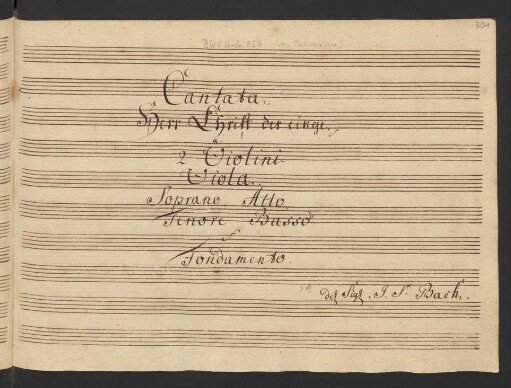 Cantata.
Herr Christ der einge.
a
2 Violini
Viola.
Soprano, Alto,
Tenore Basso
e
Fondamento
del Sigl. J. S. Bach.